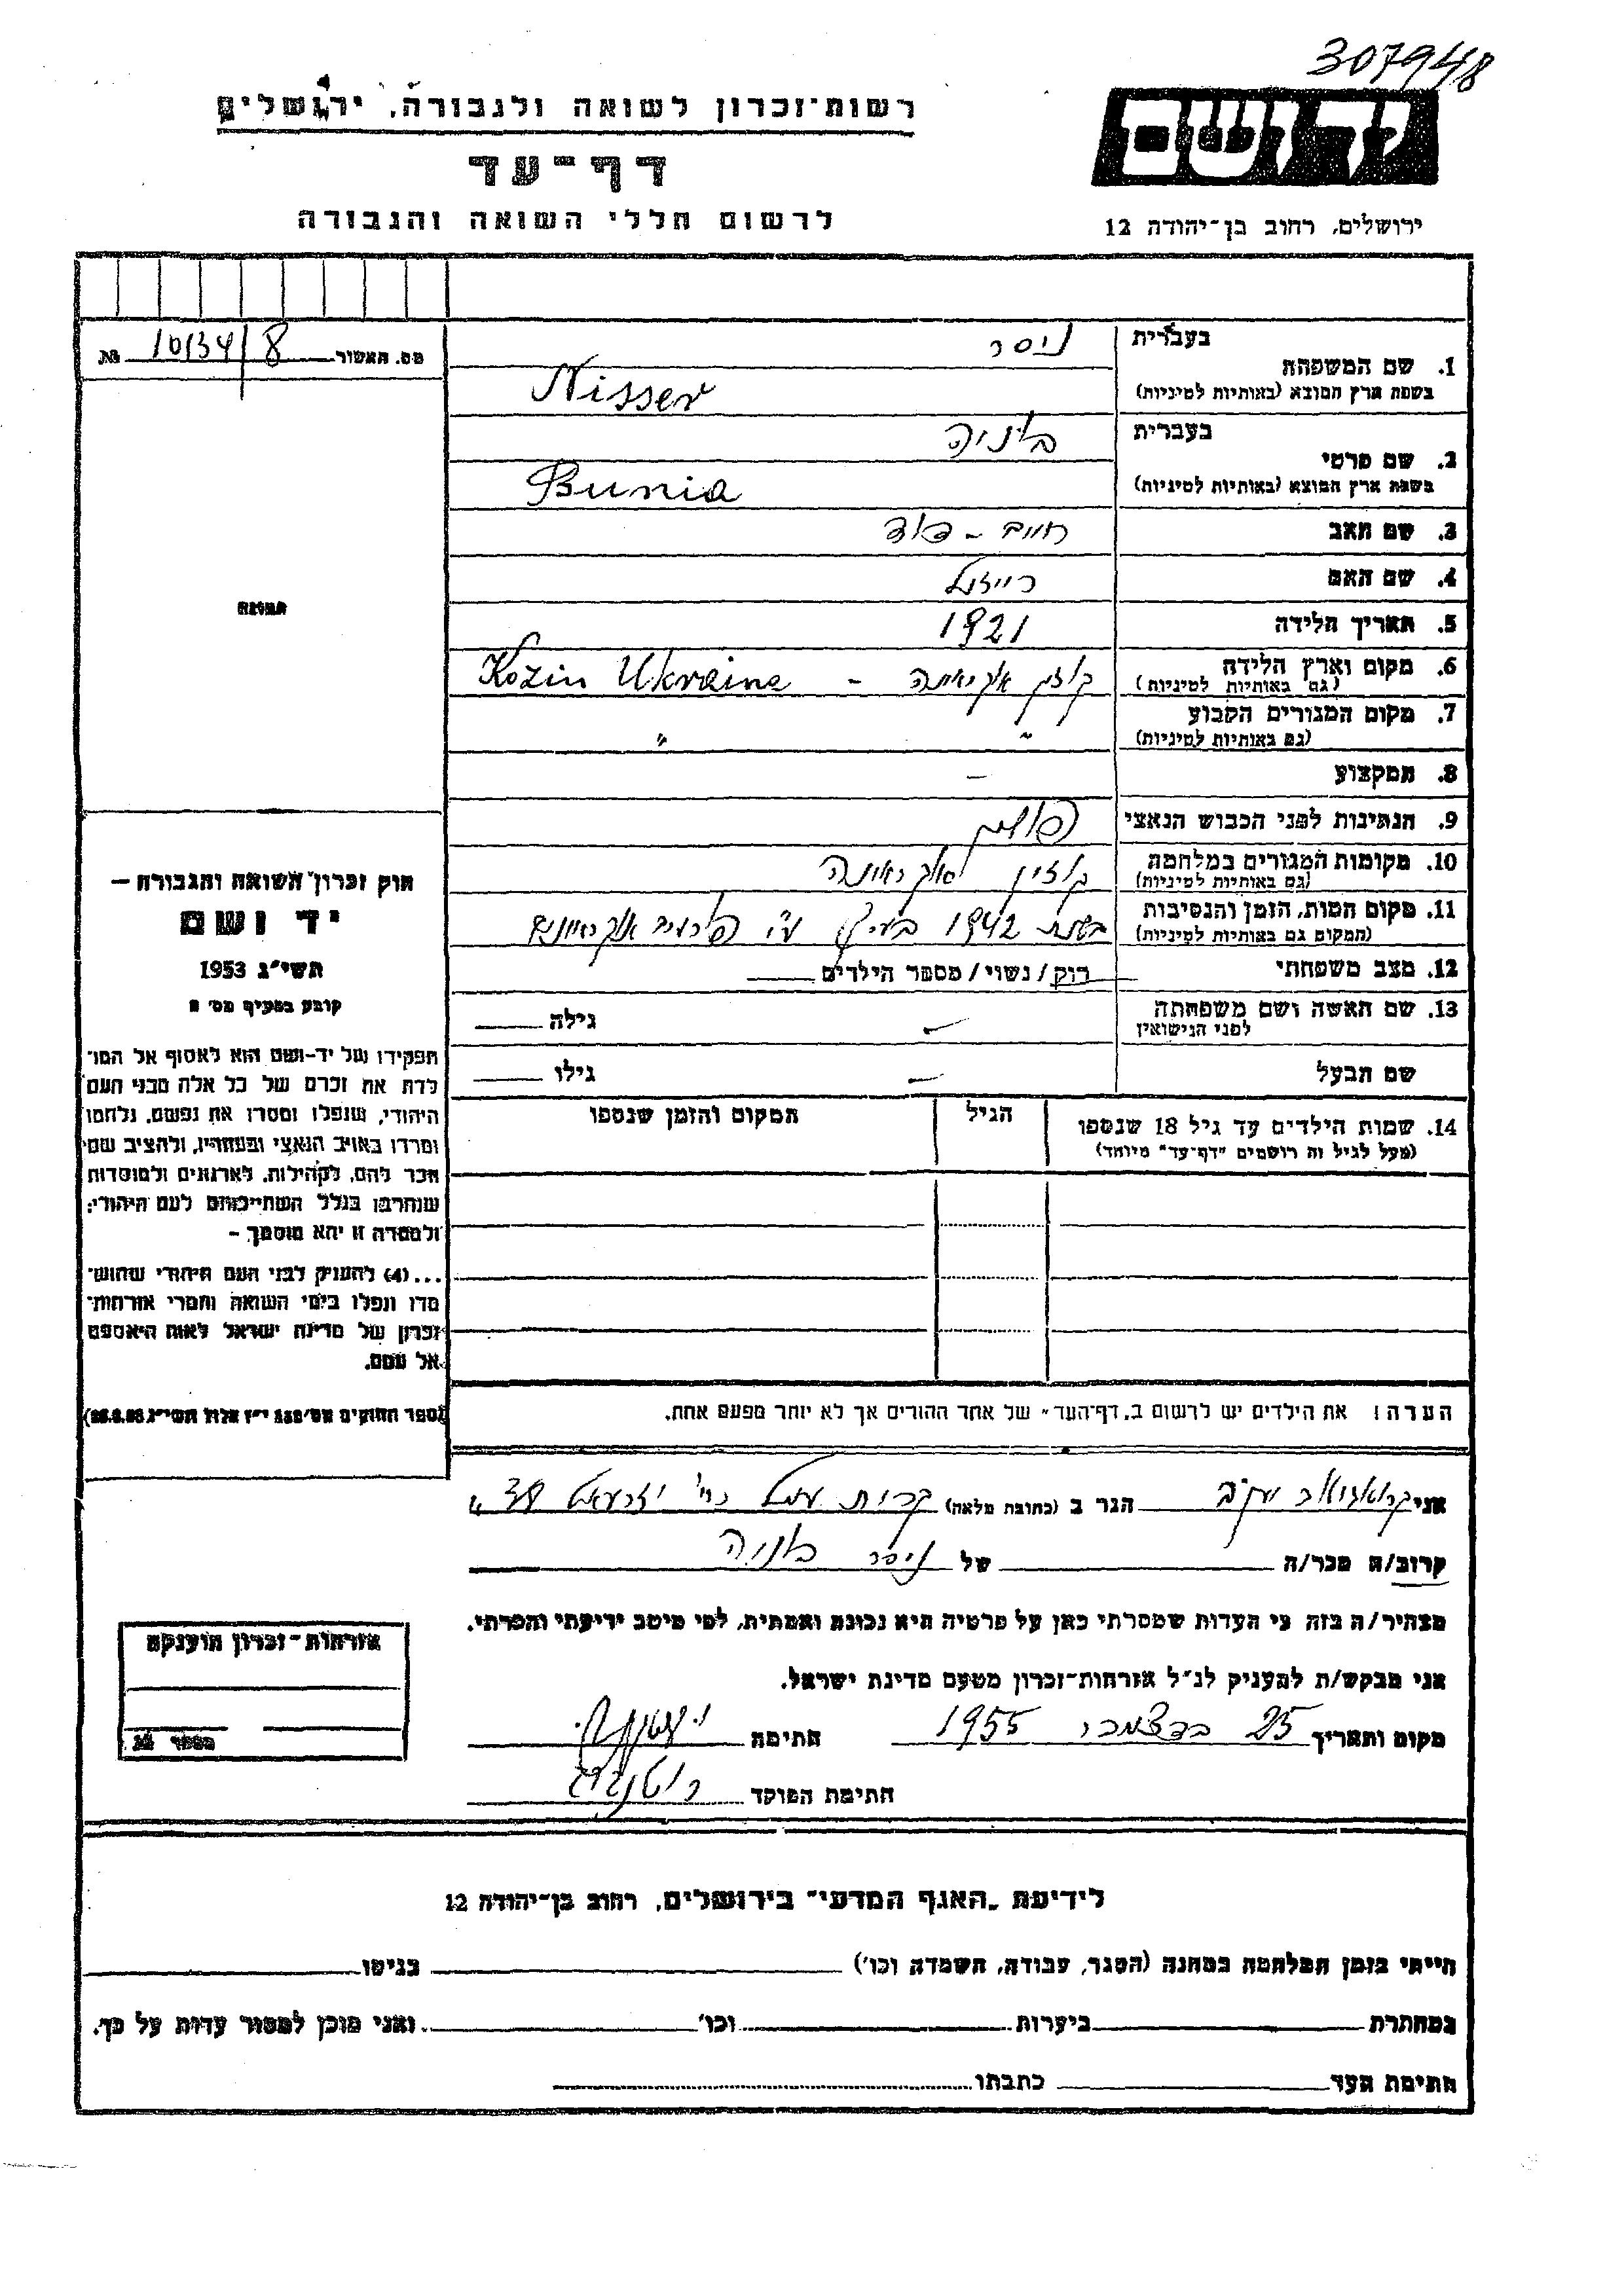 307948
רשות־זכרון לשואה ולגבורה, ירושלים
יד ושם
דף־עד
לרשום חללי השואה והגבורה
ירושלים, רחוב בן־יהודה 12
מס. האשור 10134/8 №
בעברית ניסר
1. שם המשפחה
בשפת ארץ המוצא (באותיות לטיניות) Nisser
בעברית בוניה
2. שם פרטי
בשפת ארץ המוצא (באותיות לטיניות) Bunia
3. שם האב חיים -
4. שם האם רייזל
5. תאריך הלידה 1921
6. מקום וארץ הלידה קוזין אוקראינה - Kozin Ukraine
(גם באותיות לטיניות)
7. מקום המגורים הקבוע " "
(גם באותיות לטיניות)
8. המקצוע –
9. הנתינות לפני הכבוש הנאצי
10. מקומות המגורים במלחמה קוזין אוקראינה
(גם באותיות לטיניות)
11. מקום המות, הזמן והנסיבות בשנת 1942 ע"י אוקראינים
(המקום גם באותיות לטיניות)
12. מצב משפחתי רוק / נשוי / מספר הילדים
13. שם האשה ושם משפחתה – גילה
לפני הנישואין
שם הבעל – גילו
14. שמות הילדים עד גיל 18 שנספו הגיל המקום והזמן שנספו
(מעל לגיל זה רושמים "דף־עד" מיוחד)
הערה: את הילדים יש לרשום ב„דף־העד" של אחד ההורים אך לא יותר מפעם אחת.
תמונה
חוק זכרון השואה והגבורה –
יד ושם
תשי"ג 1953
קובע בסעיף מס' 2
תפקידו של יד-ושם הוא לאסוף אל המו־
לדת את זכרם של כל אלה מבני העם
היהודי, שנפלו ומסרו את נפשם, נלחמו
ומרדו באויב הנאצי ובעוזריו, ולהציב שם
וזכר להם, לקהילות, לארגונים ולמוסדות
שנחרבו בגלל השתייכותם לעם היהודי;
ולמטרה זו יהא מוסמך –
...(4) להעניק לבני העם היהודי שהוש־
מדו ונפלו בימי השואה והמרי אזרחות־
זכרון של מדינת ישראל לאות היאספם
אל עמם.
אני יעקב הגר ב (כתובת מלאה) קרית עמל רח' יזרעאל
קרוב/ה מכר/ה של ניסר בוניה
מצהיר/ה בזה כי העדות שמסרתי כאן על פרטיה היא נכונה ואמתית, לפי מיטב ידיעתי והכרתי.
אני מבקש/ת להעניק לנ"ל אזרחות־זכרון מטעם מדינת ישראל.
מקום ותאריך 25 בדצמבר 1955 חתימה
חתימת הפוקד
אזרחות־זכרון הוענקה
מספר №
לידיעת „האגף המדעי" בירושלים, רחוב בן־יהודה 12
הייתי בזמן המלחמה במחנה (הסגר, עבודה, השמדה וכו') בגיטו
במחתרת ביערות וכו' ואני מוכן למסור עדות על כך.
חתימת העד כתבתו